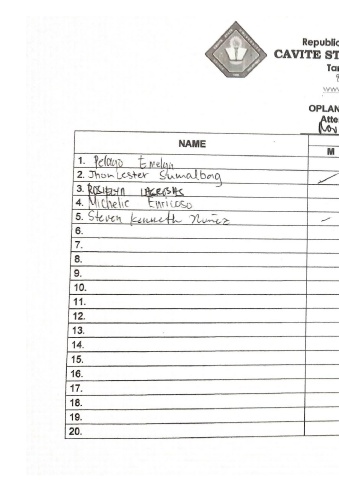 Republic
CAVITE ST
Tan
www
OPLAN
Atte
Nov
NAME
M
1. Pelagio Emelyn
2. Jhon Lester Sumalbag
3. ROSHELYN
4. Michelle Enricoso
5. Steven Kenneth Nuñez
6.
7.
8.
9.
10.
11.
12.
13.
14.
15.
16.
17.
18.
19.
20.